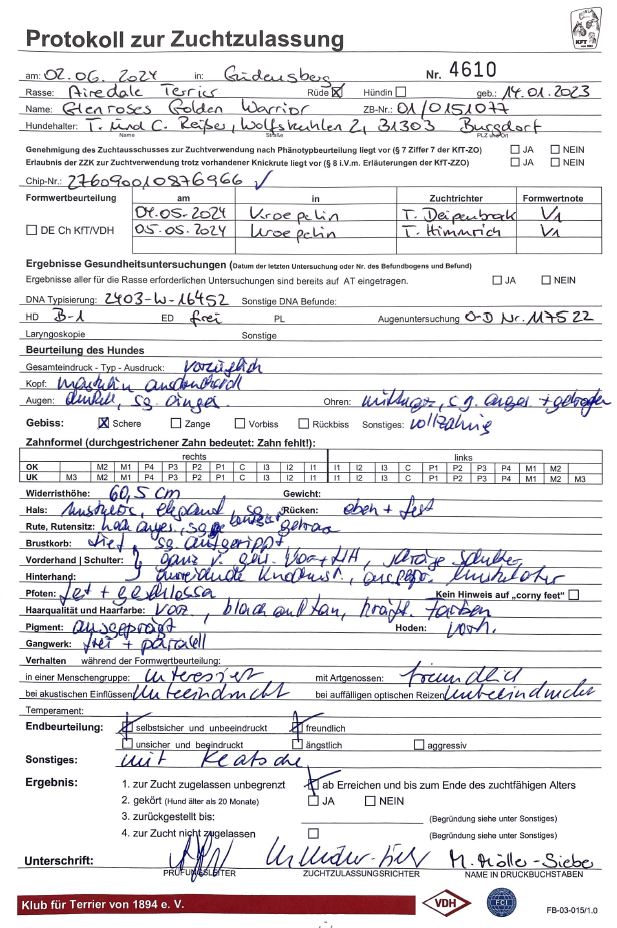 Protokoll zur Zuchtzulassung
KFT
am: 02.06.2024 in: Gudensberg Nr. 4610
Rasse: Airedale Terrier Rüde ☒ Hündin ☐ geb.: 14.01.2023
Name: Glenroses Golden Warrior ZB-Nr.: 01/0151077
Hundehalter: T. und C. Reißer, Wolfskuhlen 2, 31303 Burgdorf
Name Straße PLZ und Ort
Genehmigung des Zuchtausschusses zur Zuchtverwendung nach Phänotypbeurteilung liegt vor (§ 7 Ziffer 7 der KfT-ZO) ☐ JA ☐ NEIN
Erlaubnis der ZZK zur Zuchtverwendung trotz vorhandener Knickrute liegt vor (§ 8 i.V.m. Erläuterungen der KfT-ZZO) ☐ JA ☐ NEIN
Chip-Nr.: 276090010876966 ✓
Formwertbeurteilung am in Zuchtrichter Formwertnote
04.05.2024 Kroepelin T. Deipenbrock V1
☐ DE Ch KfT/VDH 05.05.2024 Kroepelin T. Himmrich V1
Ergebnisse Gesundheitsuntersuchungen (Datum der letzten Untersuchung oder Nr. des Befundbogens und Befund)
Ergebnisse aller für die Rasse erforderlichen Untersuchungen sind bereits auf AT eingetragen. ☐ JA ☐ NEIN
DNA Typisierung: 2403-W-16452 Sonstige DNA Befunde:
HD B-1 ED frei PL Augenuntersuchung O-D Nr. 117522
Laryngoskopie Sonstige
Beurteilung des Hundes
Gesamteindruck - Typ - Ausdruck: vorzüglich
Kopf: maskulin ausdrucksvoll
Augen: dunkel, sg. Ohren: sg. + getragen
Gebiss: ☒ Schere ☐ Zange ☐ Vorbiss ☐ Rückbiss Sonstiges: vollzahnig
Zahnformel (durchgestrichener Zahn bedeutet: Zahn fehlt!):
rechts links
OK M2 M1 P4 P3 P2 P1 C I3 I2 I1 I1 I2 I3 C P1 P2 P3 P4 M1 M2
UK M3 M2 M1 P4 P3 P2 P1 C I3 I2 I1 I1 I2 I3 C P1 P2 P3 P4 M1 M2 M3
Widerristhöhe: 60,5 cm Gewicht:
Hals: muskulös, elegant, sg Rücken: eben + fest
Rute, Rutensitz: hoch anges., sg getragen
Brustkorb: tief, sg. aufgerippt
Vorderhand | Schulter: ganz v. gew. Vor + HH, schräge Schulter,
Hinterhand: ausreichende Knochenst., ausgepr. Muskulatur
Pfoten: fest + geschlossen Kein Hinweis auf „corny feet" ☐
Haarqualität und Haarfarbe: vorz., black and tan, kräft. Farben
Pigment: ausgeprägt Hoden: vorh.
Gangwerk: frei + parallel
Verhalten während der Formwertbeurteilung:
in einer Menschengruppe: interessiert mit Artgenossen: freundlich
bei akustischen Einflüssen unbeeindruckt bei auffälligen optischen Reizen unbeeindruckt
Temperament:
Endbeurteilung: ☒ selbstsicher und unbeeindruckt ☒ freundlich
☐ unsicher und beeindruckt ☐ ängstlich ☐ aggressiv
Sonstiges: mit
Ergebnis: 1. zur Zucht zugelassen unbegrenzt ☒ ab Erreichen und bis zum Ende des zuchtfähigen Alters
2. gekört (Hund älter als 20 Monate) ☐ JA ☐ NEIN
3. zurückgestellt bis: (Begründung siehe unter Sonstiges)
4. zur Zucht nicht zugelassen ☐ (Begründung siehe unter Sonstiges)
Unterschrift: M. Möller-Sieber
PRÜFUNGSLEITER ZUCHTZULASSUNGSRICHTER NAME IN DRUCKBUCHSTABEN
Klub für Terrier von 1894 e. V. VDH FCI FB-03-015/1.0